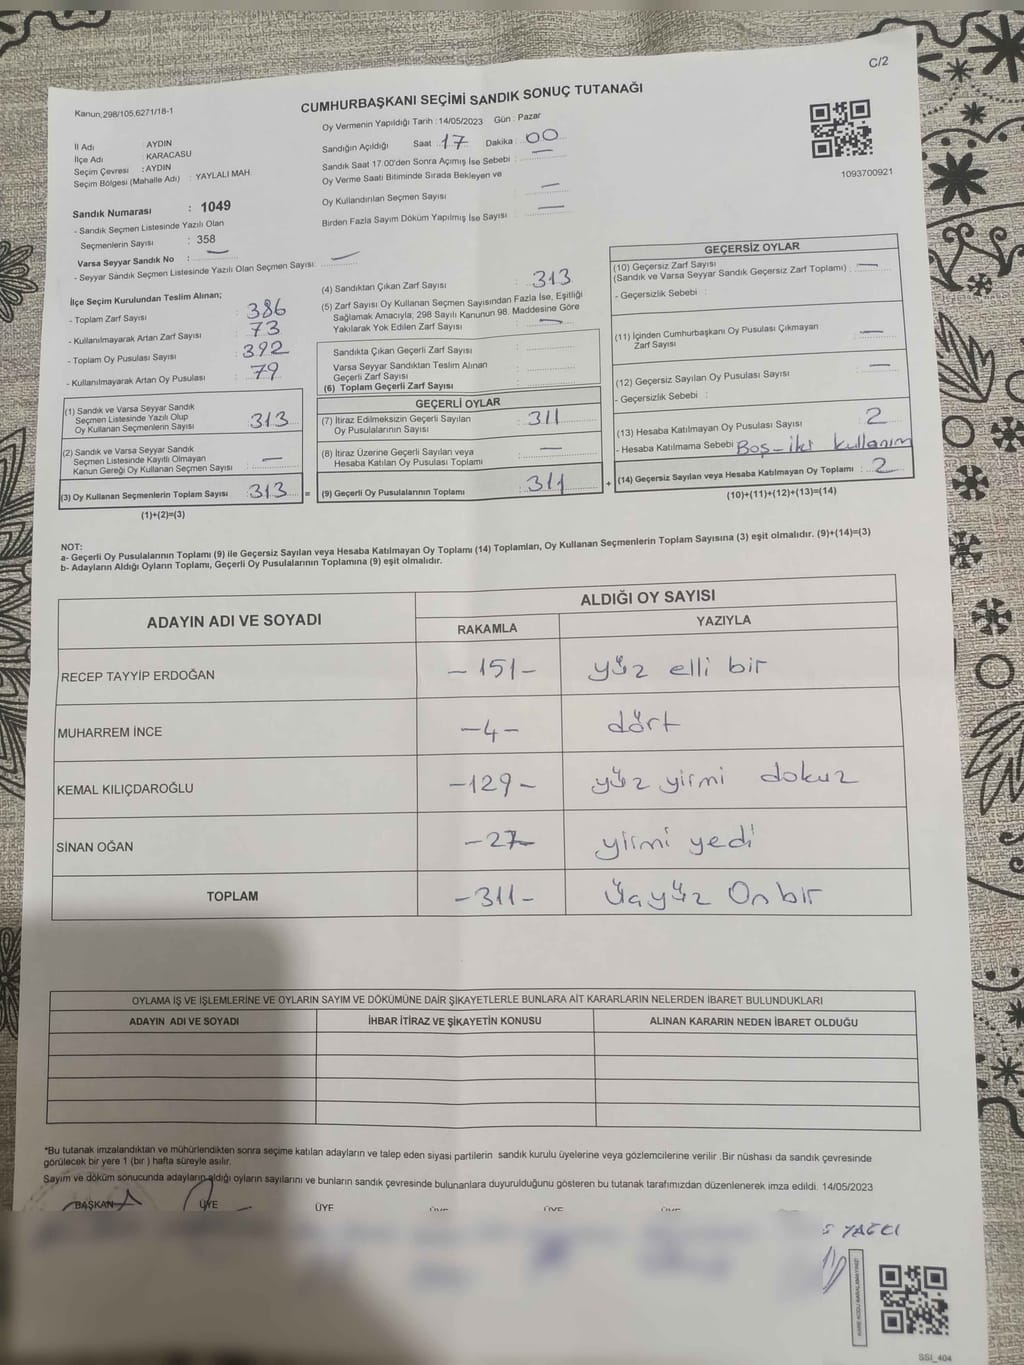 C/2
Kanun;298/105,6271/18-1
CUMHURBAŞKANI SEÇİMİ SANDIK SONUÇ TUTANAĞI
Oy Vermenin Yapıldığı Tarih :14/05/2023 Gün : Pazar
İl Adı : AYDIN
İlçe Adı : KARACASU
Seçim Çevresi : AYDIN
Seçim Bölgesi (Mahalle Adı) : YAYLALI MAH.
Sandığın Açıldığı Saat : 17 Dakika : 00
Sandık Saat 17.00'den Sonra Açımış İse Sebebi : —
Oy Verme Saati Bitiminde Sırada Bekleyen ve
Oy Kullandırılan Seçmen Sayısı : —
Birden Fazla Sayım Döküm Yapılmış İse Sayısı : —
1093700921
Sandık Numarası : 1049
- Sandık Seçmen Listesinde Yazılı Olan
Seçmenlerin Sayısı : 358
Varsa Seyyar Sandık No : —
- Seyyar Sandık Seçmen Listesinde Yazılı Olan Seçmen Sayısı: —
İlçe Seçim Kurulundan Teslim Alınan;
- Toplam Zarf Sayısı : 386
- Kullanılmayarak Artan Zarf Sayısı : 73
- Toplam Oy Pusulası Sayısı : 392
- Kullanılmayarak Artan Oy Pusulası : 79
(1) Sandık ve Varsa Seyyar Sandık
Seçmen Listesinde Yazılı Olup
Oy Kullanan Seçmenlerin Sayısı : 313
(2) Sandık ve Varsa Seyyar Sandık
Seçmen Listesinde Kayıtlı Olmayan
Kanun Gereği Oy Kullanan Seçmen Sayısı : —
(3) Oy Kullanan Seçmenlerin Toplam Sayısı : 313
(1)+(2)=(3)
(4) Sandıktan Çıkan Zarf Sayısı : 313
(5) Zarf Sayısı Oy Kullanan Seçmen Sayısından Fazla İse, Eşitliği
Sağlamak Amacıyla; 298 Sayılı Kanunun 98. Maddesine Göre
Yakılarak Yok Edilen Zarf Sayısı : —
Sandıkta Çıkan Geçerli Zarf Sayısı :
Varsa Seyyar Sandıktan Teslim Alınan
Geçerli Zarf Sayısı :
(6) Toplam Geçerli Zarf Sayısı :
GEÇERLİ OYLAR
(7) İtiraz Edilmeksizin Geçerli Sayılan
Oy Pusulalarının Sayısı : 311
(8) İtiraz Üzerine Geçerli Sayılan veya
Hesaba Katılan Oy Pusulası Toplamı : —
= (9) Geçerli Oy Pusulalarının Toplamı : 311 +
GEÇERSİZ OYLAR
(10) Geçersiz Zarf Sayısı
(Sandık ve Varsa Seyyar Sandık Geçersiz Zarf Toplamı) : —
- Geçersizlik Sebebi :
(11) İçinden Cumhurbaşkanı Oy Pusulası Çıkmayan
Zarf Sayısı : —
(12) Geçersiz Sayılan Oy Pusulası Sayısı : —
- Geçersizlik Sebebi :
(13) Hesaba Katılmayan Oy Pusulası Sayısı : 2
- Hesaba Katılmama Sebebi : Boş - iki kullanım
(14) Geçersiz Sayılan veya Hesaba Katılmayan Oy Toplamı : 2
(10)+(11)+(12)+(13)=(14)
NOT:
a- Geçerli Oy Pusulalarının Toplamı (9) ile Geçersiz Sayılan veya Hesaba Katılmayan Oy Toplamı (14) Toplamları, Oy Kullanan Seçmenlerin Toplam Sayısına (3) eşit olmalıdır. (9)+(14)=(3)
b- Adayların Aldığı Oyların Toplamı, Geçerli Oy Pusulalarının Toplamına (9) eşit olmalıdır.
ADAYIN ADI VE SOYADI ALDIĞI OY SAYISI
RAKAMLA YAZIYLA
RECEP TAYYİP ERDOĞAN -151- yüz elli bir
MUHARREM İNCE -4- dört
KEMAL KILIÇDAROĞLU -129- yüz yirmi dokuz
SİNAN OĞAN -27- yirmi yedi
TOPLAM -311- Üçyüz On bir
OYLAMA İŞ VE İŞLEMLERİNE VE OYLARIN SAYIM VE DÖKÜMÜNE DAİR ŞİKAYETLERLE BUNLARA AİT KARARLARIN NELERDEN İBARET BULUNDUKLARI
ADAYIN ADI VE SOYADI İHBAR İTİRAZ VE ŞİKAYETİN KONUSU ALINAN KARARIN NEDEN İBARET OLDUĞU
*Bu tutanak imzalandıktan ve mühürlendikten sonra seçime katılan adayların ve talep eden siyasi partilerin sandık kurulu üyelerine veya gözlemcilerine verilir .Bir nüshası da sandık çevresinde
görülecek bir yere 1 (bir ) hafta süreyle asılır.
Sayım ve döküm sonucunda adayların aldığı oyların sayılarını ve bunların sandık çevresinde bulunanlara duyurulduğunu gösteren bu tutanak tarafımızdan düzenlenerek imza edildi. 14/05/2023
BAŞKAN ÜYE ÜYE ÜYE ÜYE ÜYE
SSI_404